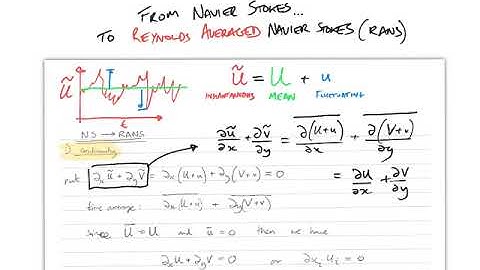 FROM NAVIER STOKES...
TO REYNOLDS AVERAGED NAVIER STOKES (RANS)
ũ
t
ũ = U + u
INSTANTANEOUS MEAN FLUCTUATING
NS → RANS
1) continuity
∂ũ/∂x + ∂ṽ/∂y = \overline{∂(U+u)}/∂x + \overline{∂(V+v)}/∂y
= ∂U/∂x + ∂V/∂y
∂ₓũ + ∂ᵧṽ = ∂ₓ(U+u) + ∂ᵧ(V+v) = 0
time average: \overline{∂ₓ(U+u)} + \overline{∂ᵧ(V+v)}
since \overline{U} = U and \overline{u} = 0 then we have
∂ₓU + ∂ᵧV = 0 or ∂xᵢ Uᵢ = 0